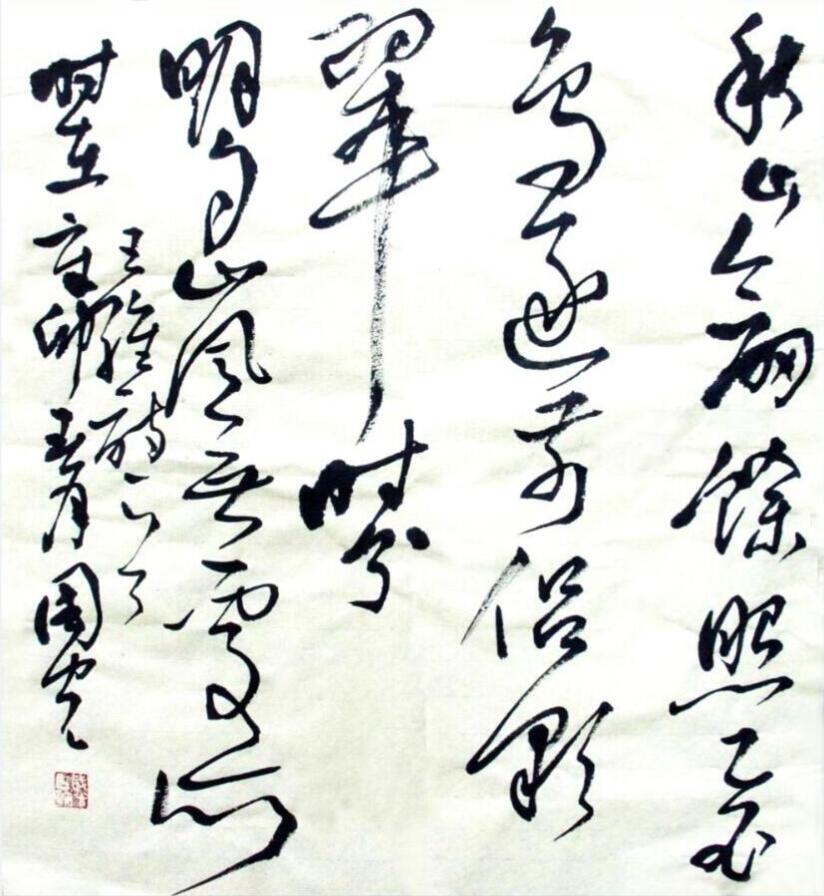 秋山斂餘照飛
鳥逐前侣彩
翠时分
明夕嵐無處所
王維詩一首
时在辛卯五月周